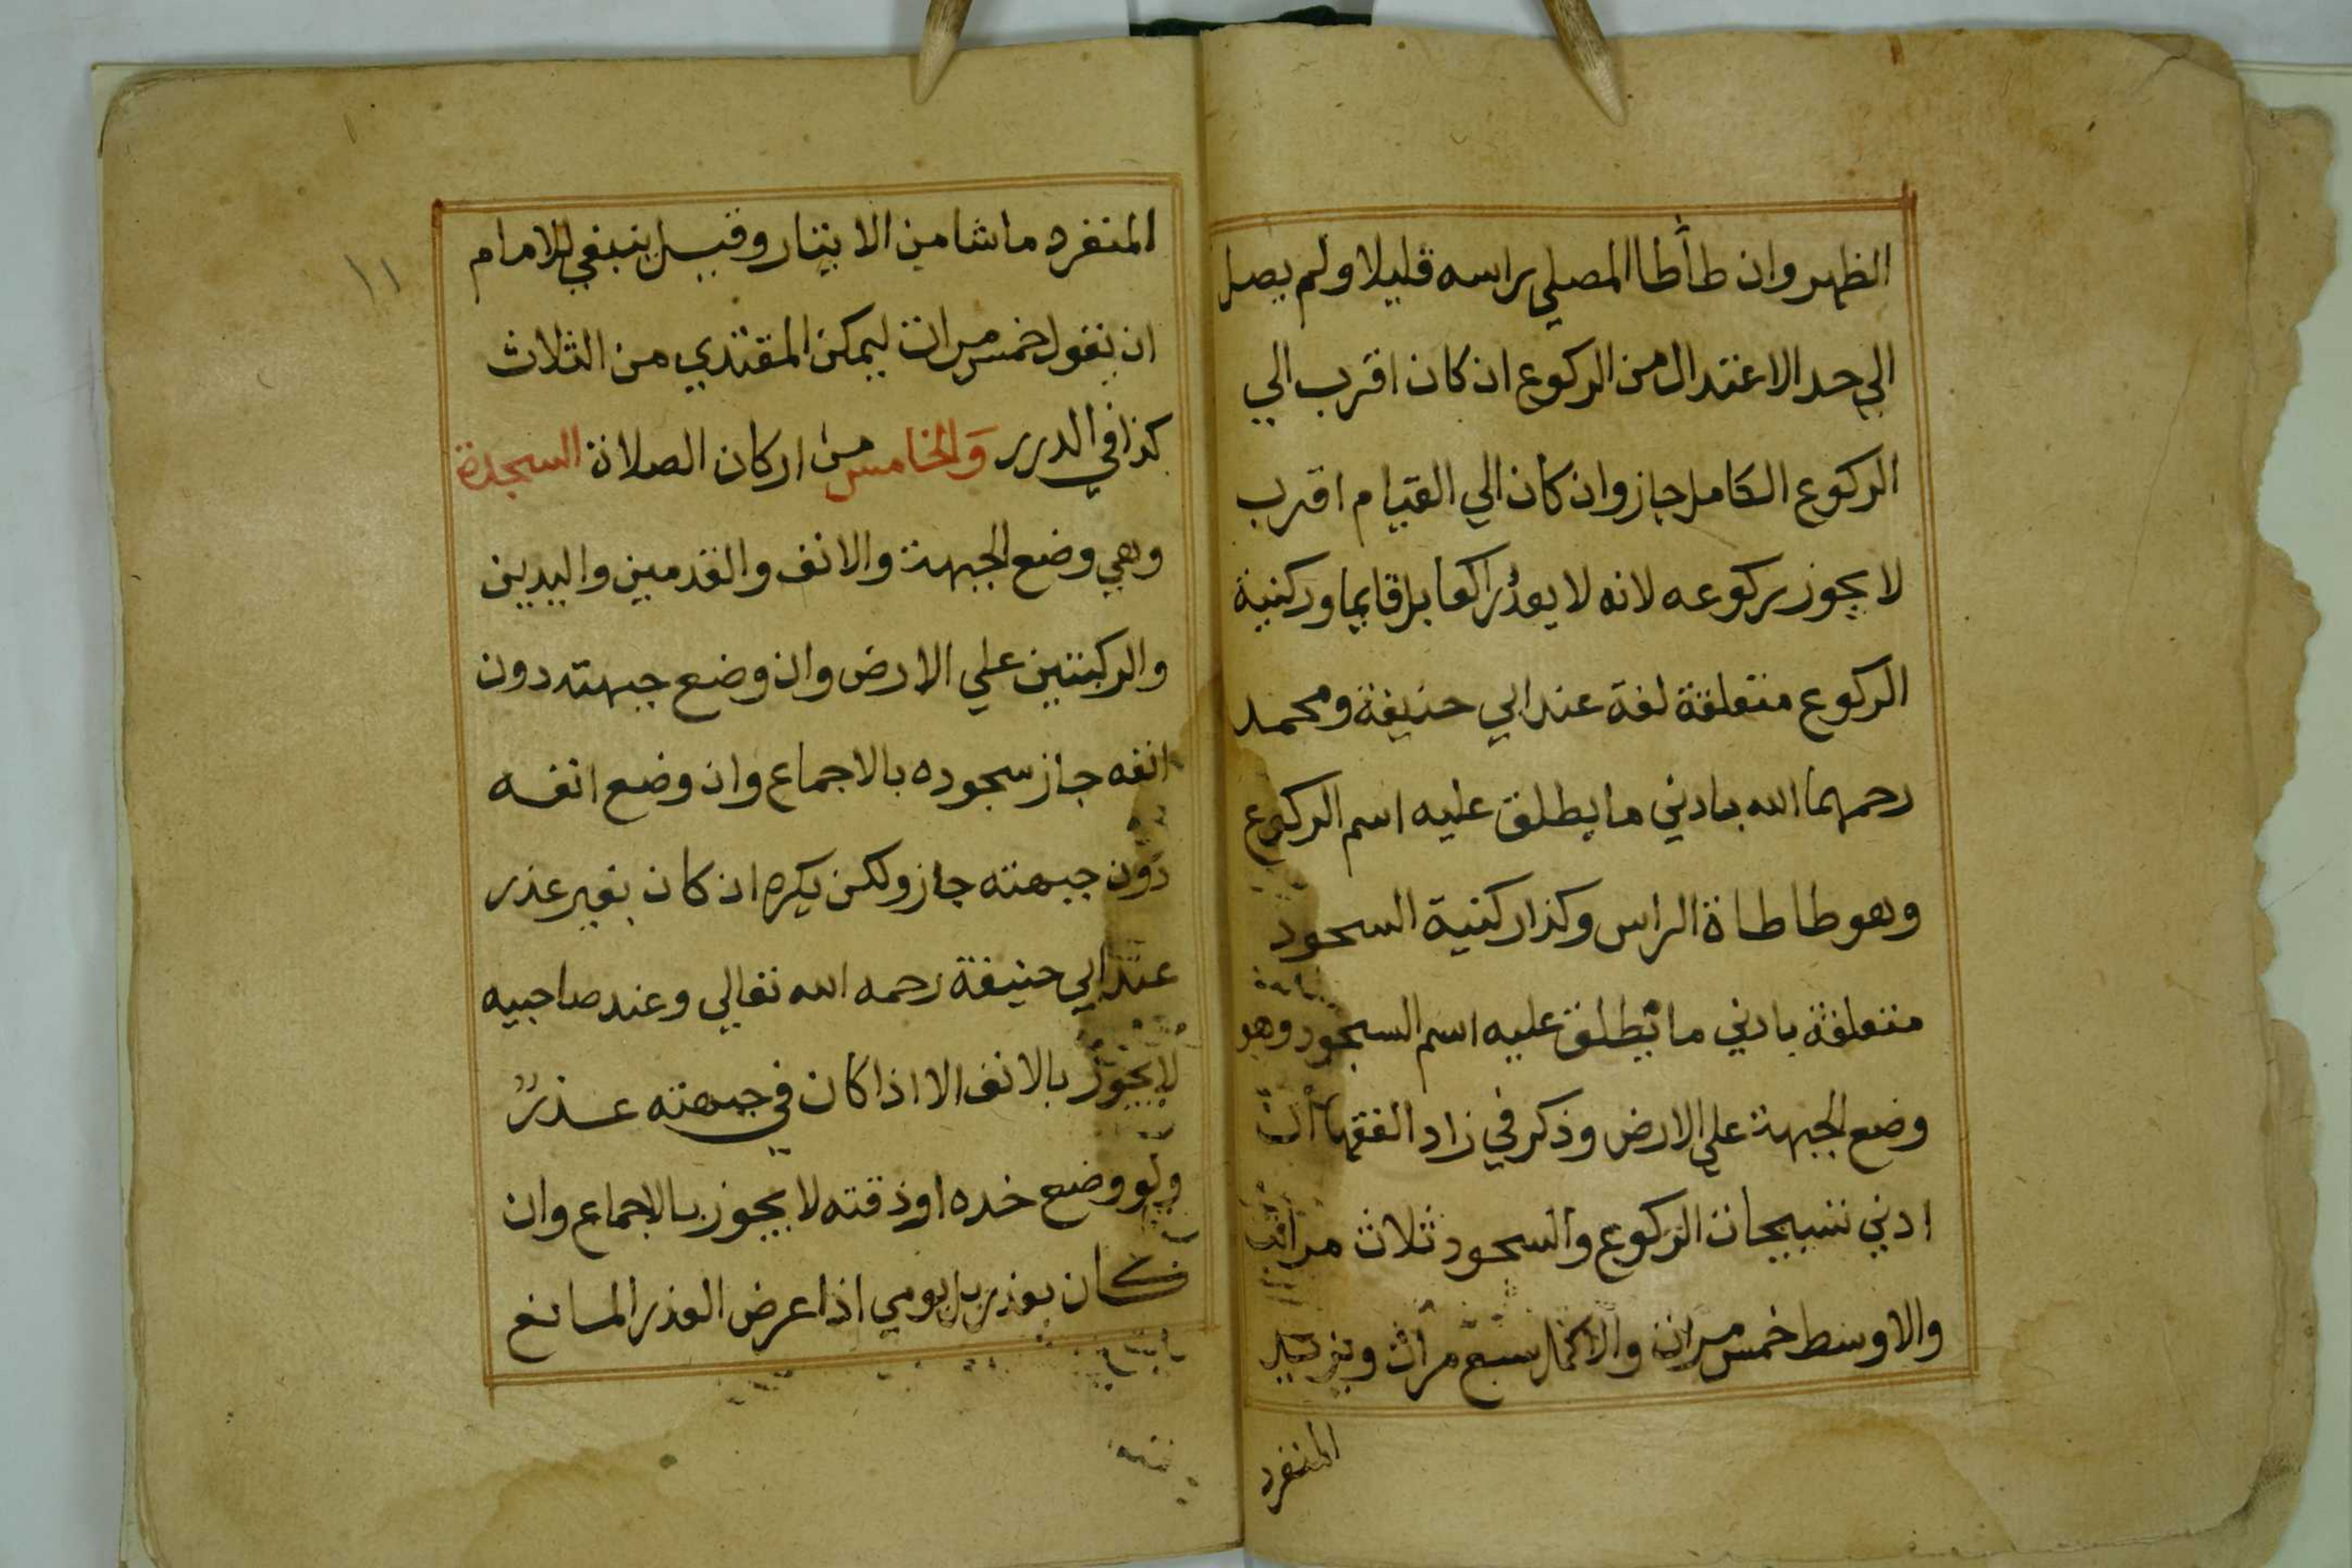 الظهر وان طأطا المصلي براسه قليلا ولم يصل
الي حد الاعتدال من الركوع ان كان اقرب الي
الركوع الكامل جاز وان كان الي القيام اقرب
لا يجوز ركوعه لانه لا يعد راكعا بل قايما وركنية
الركوع متعلقة لغة عند ابي حنيفة ومحمد
رحمهما الله بادني ما يطلق عليه اسم الركوع
وهو طاطاة الراس وكذا ركنية السجود
متعلقة بادني ما يطلق عليه اسم السجود وهو
وضع الجبهة علي الارض وذكر في زاد الفقها ان
ادني تسبيحات الركوع والسجود ثلاث مرات
والاوسط خمس مرات والاكمل سبع مرات ويزيد
المنفرد
١١
المنفرد ما شا من الايتار وقيل ينبغي للامام
ان يقول خمس مرات ليمكن المقتدي من الثلاث
كذا في الدرر والخامس من اركان الصلاة السجدة
وهي وضع الجبهة والانف والقدمين واليدين
والركبتين علي الارض وان وضع جبهته دون
انفه جاز سجوده بالاجماع وان وضع انفه
دون جبهته جاز ولكن يكره ان كان بغير عذر
عند ابي حنيفة رحمه الله تعالي وعند صاحبيه
لا يجوز بالانف الا اذا كان في جبهته عذر
ولو وضع خده او ذقنه لا يجوز بالاجماع وان
كان بعذر بل يومي اذا عرض العذر المانع